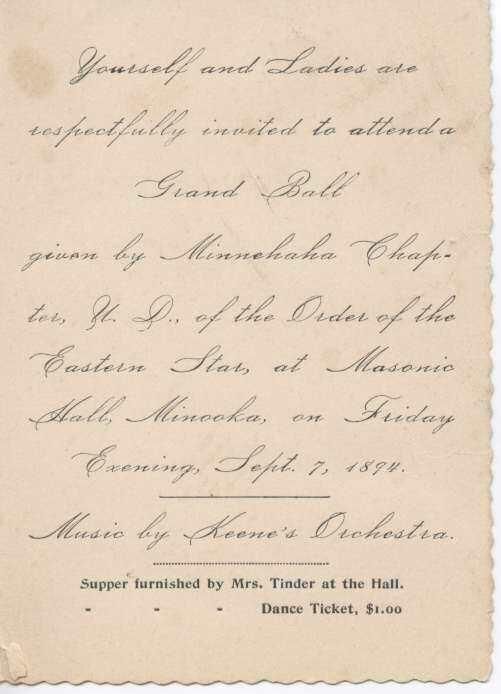 Yourself and Ladies are
respectfully invited to attend a
Grand Ball
given by Minnehaha Chap-
ter, U. D., of the Order of the
Eastern Star, at Masonic
Hall, Minooka, on Friday
Evening, Sept. 7, 1894.
Music by Keene's Orchestra.
Supper furnished by Mrs. Tinder at the Hall.
- - - Dance Ticket, $1.00